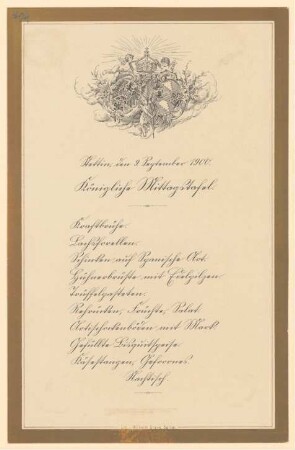 Stettin, den 9 September 1900.
Königliche Mittagstafel.
Kraftbrühe.
Lachsforellen.
Schinken auf Spanische Art.
Hühnerbrüste mit Edelpilzen.
Trüffelpasteten.
Rehrücken, Früchte, Salat.
Artischockenböden mit Mark.
Gefüllte Biscuitspeise.
Käsestangen, Gefrorenes.
Nachtisch.